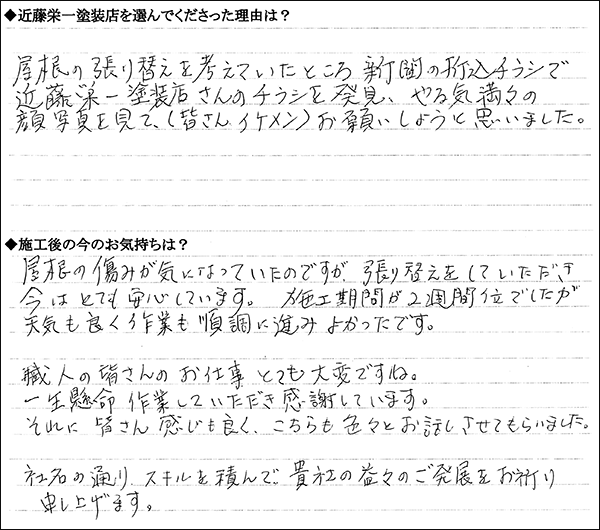 ◆近藤栄一塗装店を選んでくださった理由は？
屋根の張り替えを考えていたところ 新聞の折込チラシで
近藤栄一塗装店さんのチラシを発見、やる気満々の
顔写真を見て、(皆さんイケメン)お願いしようと思いました。
◆施工後の今のお気持ちは？
屋根の傷みが気になっていたのですが、張り替えをしていただき
今はとても安心しています。 施工期間が2週間位でしたが
天気も良く作業も順調に進みよかったです。
職人の皆さんのお仕事とても大変ですね。
一生懸命 作業していただき感謝しています。
それに 皆さん 感じも良く、こちらも色々とお話しさせてもらいました。
社名の通り スキルを積んで、貴社の益々のご発展をお祈り
申し上げます。